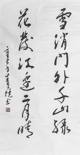 雪消門外千山綠
花發江邊二月晴